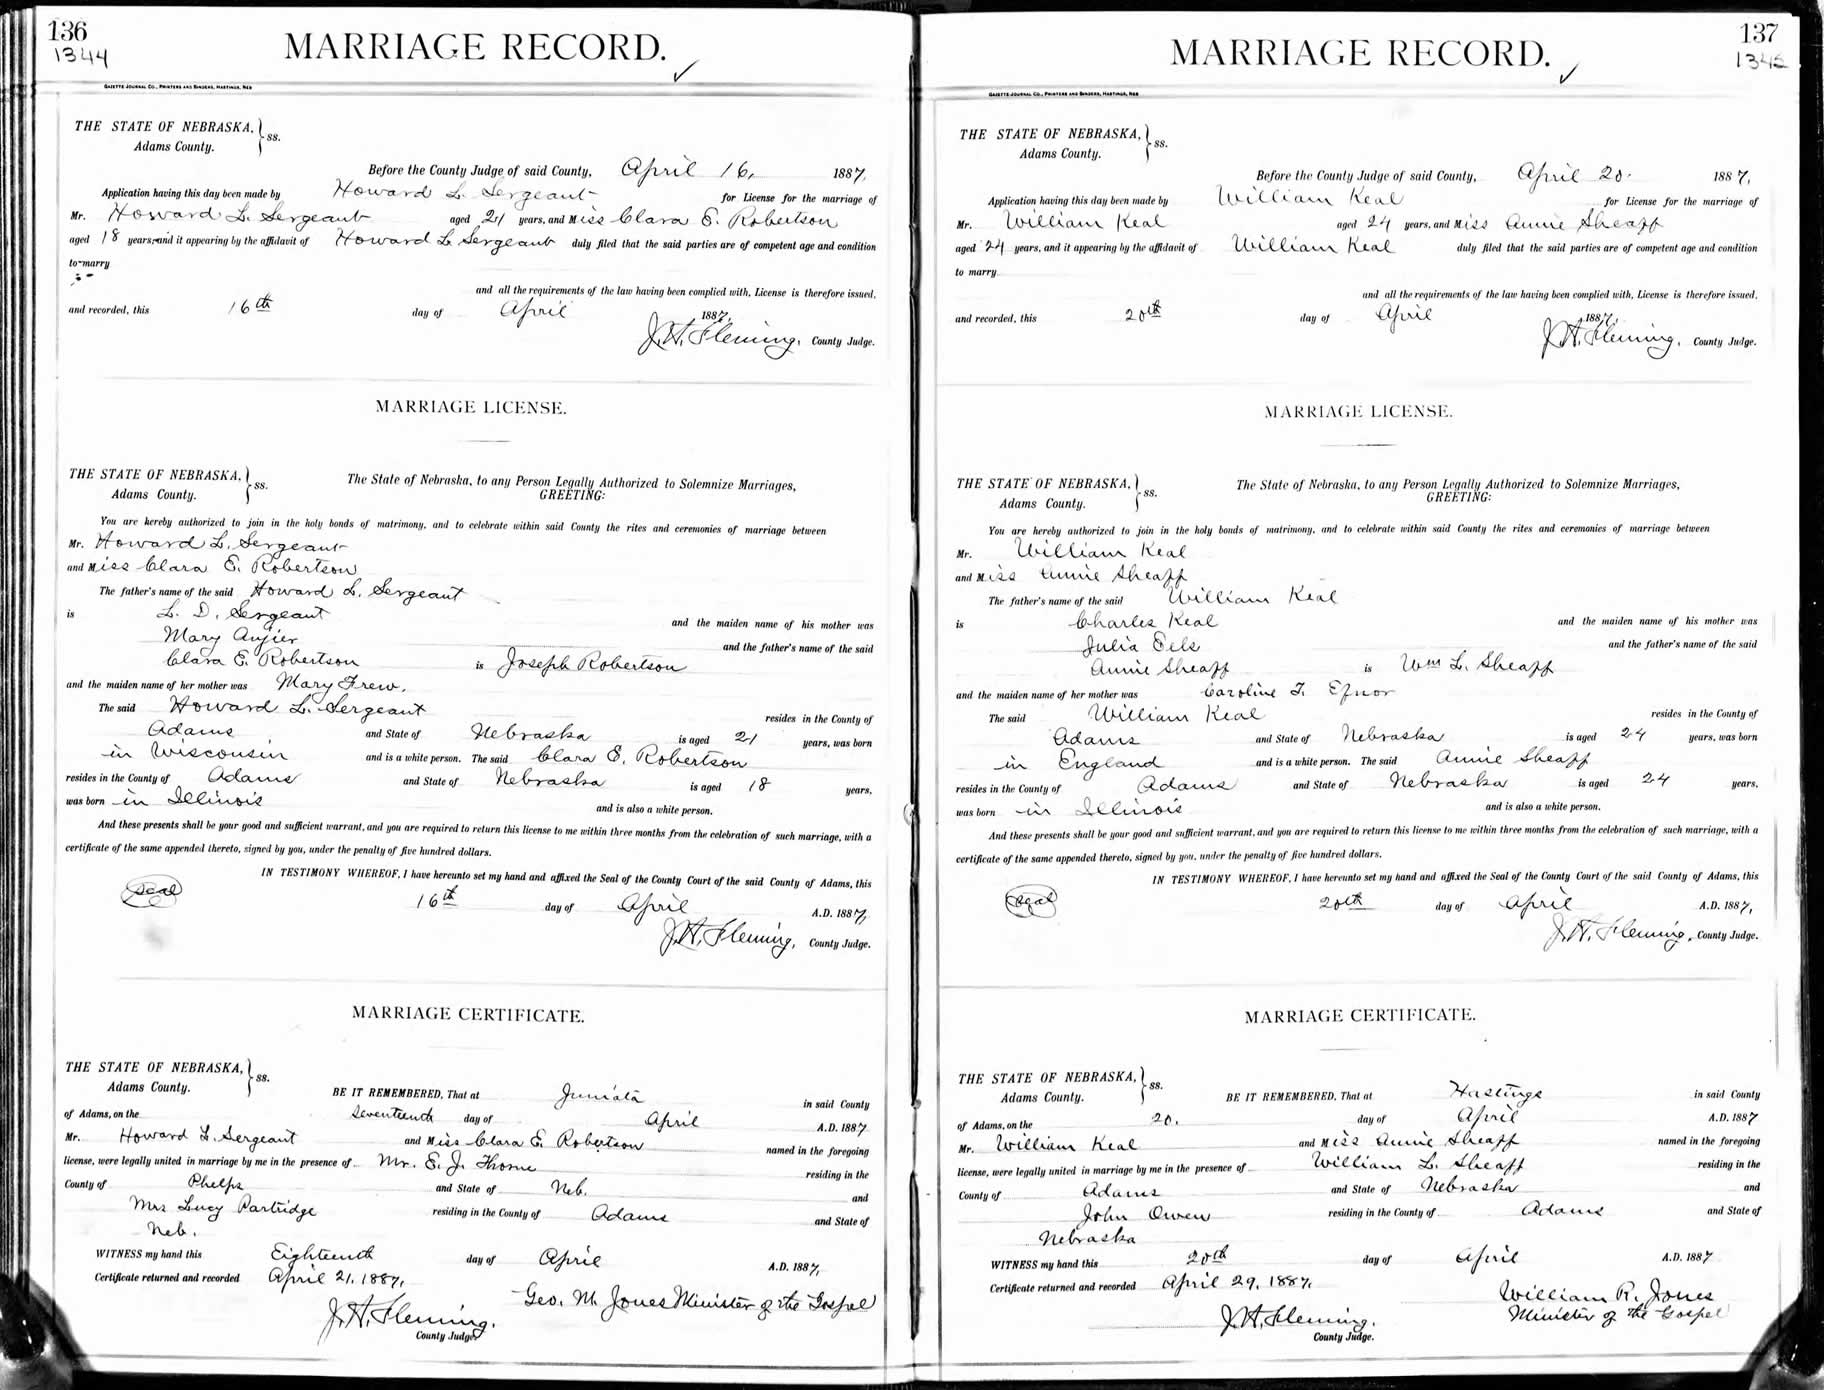 136
1344
MARRIAGE RECORD.
GAZETTE JOURNAL CO., PRINTERS AND BINDERS, HASTINGS, NEB
THE STATE OF NEBRASKA, } ss.
Adams County.
Before the County Judge of said County, April 16, 1887,
Application having this day been made by Howard L. Sergeant for License for the marriage of
Mr. Howard L. Sergeant aged 21 years, and Miss Clara E. Robertson
aged 18 years, and it appearing by the affidavit of Howard L. Sergeant duly filed that the said parties are of competent age and condition
to marry
and all the requirements of the law having been complied with, License is therefore issued,
and recorded, this 16th day of April 1887,
J. H. Fleming, County Judge.
MARRIAGE LICENSE.
THE STATE OF NEBRASKA, } ss.
Adams County.
The State of Nebraska, to any Person Legally Authorized to Solemnize Marriages,
GREETING:
You are hereby authorized to join in the holy bonds of matrimony, and to celebrate within said County the rites and ceremonies of marriage between
Mr. Howard L. Sergeant
and Miss Clara E. Robertson
The father's name of the said Howard L. Sergeant
is L. D. Sergeant and the maiden name of his mother was
Mary Anjier and the father's name of the said
Clara E. Robertson is Joseph Robertson
and the maiden name of her mother was Mary Frew.
The said Howard L. Sergeant resides in the County of
Adams and State of Nebraska is aged 21 years, was born
in Wisconsin and is a white person. The said Clara E. Robertson
resides in the County of Adams and State of Nebraska is aged 18 years,
was born in Illinois and is also a white person.
And these presents shall be your good and sufficient warrant, and you are required to return this license to me within three months from the celebration of such marriage, with a
certificate of the same appended thereto, signed by you, under the penalty of five hundred dollars.
IN TESTIMONY WHEREOF, I have hereunto set my hand and affixed the Seal of the County Court of the said County of Adams, this
seal 16th day of April A.D. 1887,
J. H. Fleming, County Judge.
MARRIAGE CERTIFICATE.
THE STATE OF NEBRASKA, } ss.
Adams County.
BE IT REMEMBERED, That at Juniata in said County
of Adams, on the Seventeenth day of April A.D. 1887
Mr. Howard L. Sergeant and Miss Clara E. Robertson named in the foregoing
license, were legally united in marriage by me in the presence of Mr. E. J. Thorne residing in the
County of Phelps and State of Neb. and
Mrs Lucy Partridge residing in the County of Adams and State of
Neb.
WITNESS my hand this Eighteenth day of April A.D. 1887,
Certificate returned and recorded April 21, 1887,
Geo. M. Jones Minister of the Gospel
J. H. Fleming,
County Judge
137
1345
MARRIAGE RECORD.
GAZETTE JOURNAL CO., PRINTERS AND BINDERS, HASTINGS, NEB
THE STATE OF NEBRASKA, } ss.
Adams County.
Before the County Judge of said County, April 20. 1887,
Application having this day been made by William Keal for License for the marriage of
Mr. William Keal aged 24 years, and Miss Annie Sheaff
aged 24 years, and it appearing by the affidavit of William Keal duly filed that the said parties are of competent age and condition
to marry
and all the requirements of the law having been complied with, License is therefore issued,
and recorded, this 20th day of April 1887,
J. H. Fleming, County Judge.
MARRIAGE LICENSE.
THE STATE OF NEBRASKA, } ss.
Adams County.
The State of Nebraska, to any Person Legally Authorized to Solemnize Marriages,
GREETING:
You are hereby authorized to join in the holy bonds of matrimony, and to celebrate within said County the rites and ceremonies of marriage between
Mr. William Keal
and Miss Annie Sheaff
The father's name of the said William Keal
is Charles Keal and the maiden name of his mother was
Julia Eels and the father's name of the said
Annie Sheaff is Wm L. Sheaff
and the maiden name of her mother was Caroline T. Efnor
The said William Keal resides in the County of
Adams and State of Nebraska is aged 24 years, was born
in England and is a white person. The said Annie Sheaff
resides in the County of Adams and State of Nebraska is aged 24 years,
was born in Illinois and is also a white person.
And these presents shall be your good and sufficient warrant, and you are required to return this license to me within three months from the celebration of such marriage, with a
certificate of the same appended thereto, signed by you, under the penalty of five hundred dollars.
IN TESTIMONY WHEREOF, I have hereunto set my hand and affixed the Seal of the County Court of the said County of Adams, this
seal 20th day of April A.D. 1887,
J. H. Fleming, County Judge.
MARRIAGE CERTIFICATE.
THE STATE OF NEBRASKA, } ss.
Adams County.
BE IT REMEMBERED, That at Hastings in said County
of Adams, on the 20. day of April A.D. 1887
Mr. William Keal and Miss Annie Sheaff named in the foregoing
license, were legally united in marriage by me in the presence of William L. Sheaff residing in the
County of Adams and State of Nebraska and
John Owen residing in the County of Adams and State of
Nebraska
WITNESS my hand this 20th day of April A.D. 1887
Certificate returned and recorded April 29, 1887,
William R. Jones
Minister of the Gospel
J. H. Fleming,
County Judge.